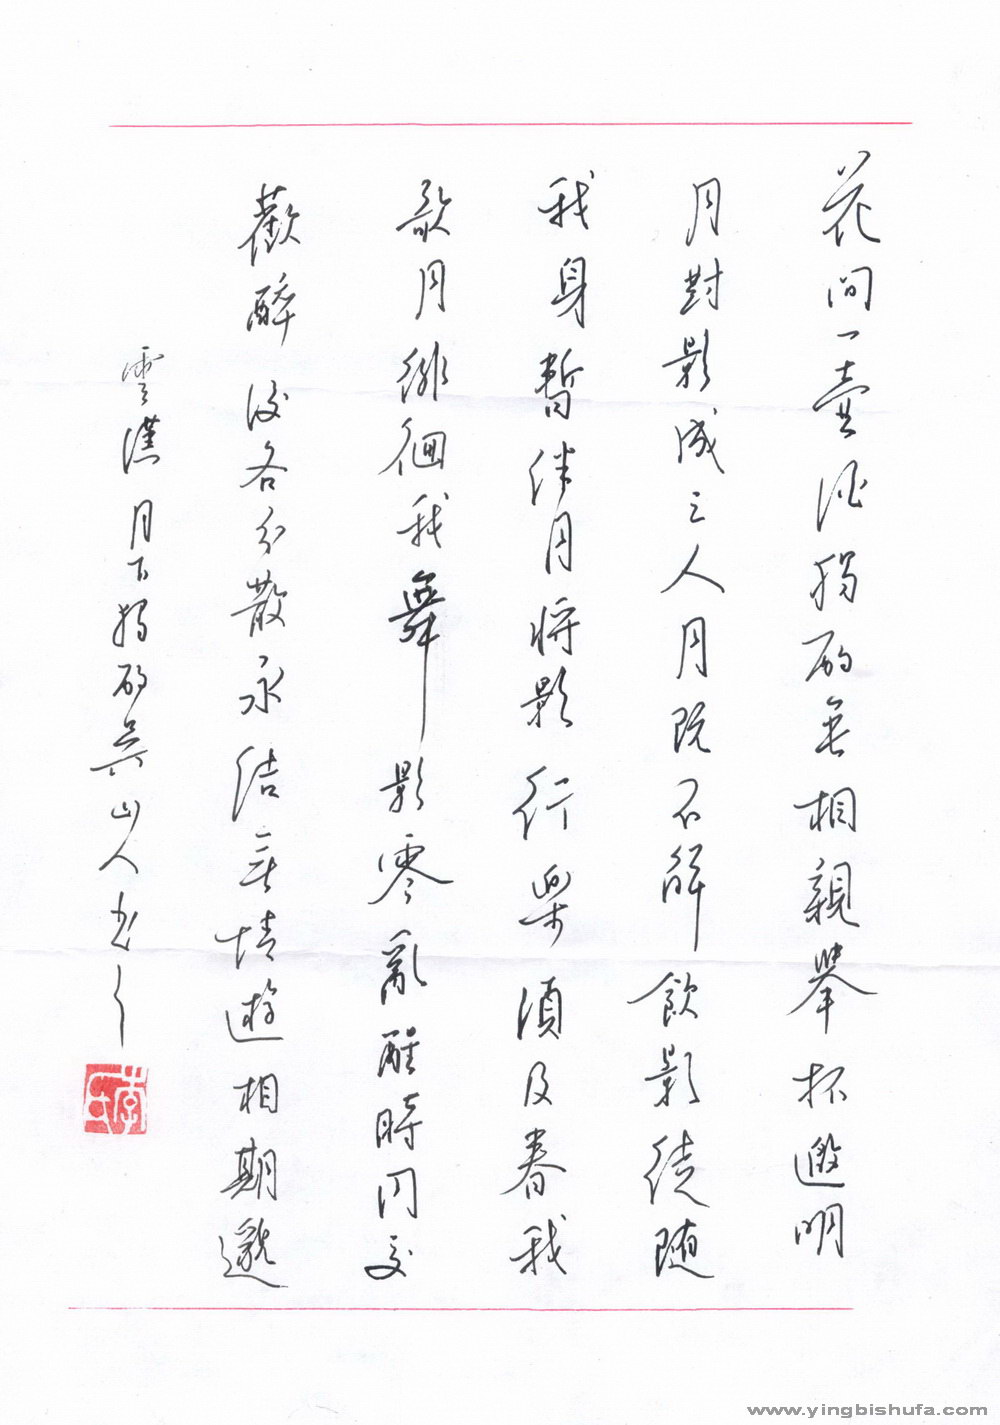 花间一壶酒独酌無相親舉杯邀明
月對影成三人月既不解飲影徒随
我身暫伴月将影行樂須及春我
歌月徘徊我舞影零亂醒時同交
歡醉後各分散永結無情遊相期邈
雲漢月下獨酌吴山人书
李氏
www.yingbishufa.com